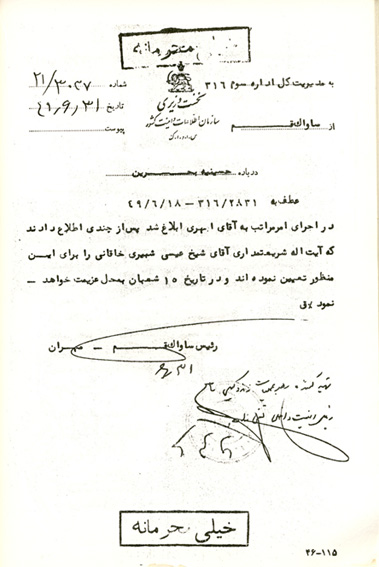 خیلی محرمانه
به مدیریت کل اداره سوم ۳۱۶
از ساواک قم
نخست وزیری
سازمان اطلاعات و امنیت کشور
س.ا.و.ا.ک
شماره ۲۱/۳۰۳۷
تاریخ ۴۹/۶/۳۱
پیوست
درباره حسینیه بحرین
عطف به ۳۱۶/۲۸۳۱ – ۴۹/۶/۱۸
در اجرای امر مراتب به آقای ابهری ابلاغ شد پس از چندی اطلاع دادند
که آیت اله شریعتمداری آقای شیخ عیسی شبیری خاقانی را برای این
منظور تعیین نموده اند و در تاریخ ۱۵ شعبان بمحل عزیمت خواهد –
نمود
رئیس ساواک قم – مهران
۶/۳۱
تهیه کننده
خیلی محرمانه
۴۶-۱۱۵